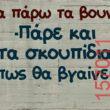 α πάρω τα βουν
·Πάρε και
τα σκουπίδια
πως θα βγαίνε